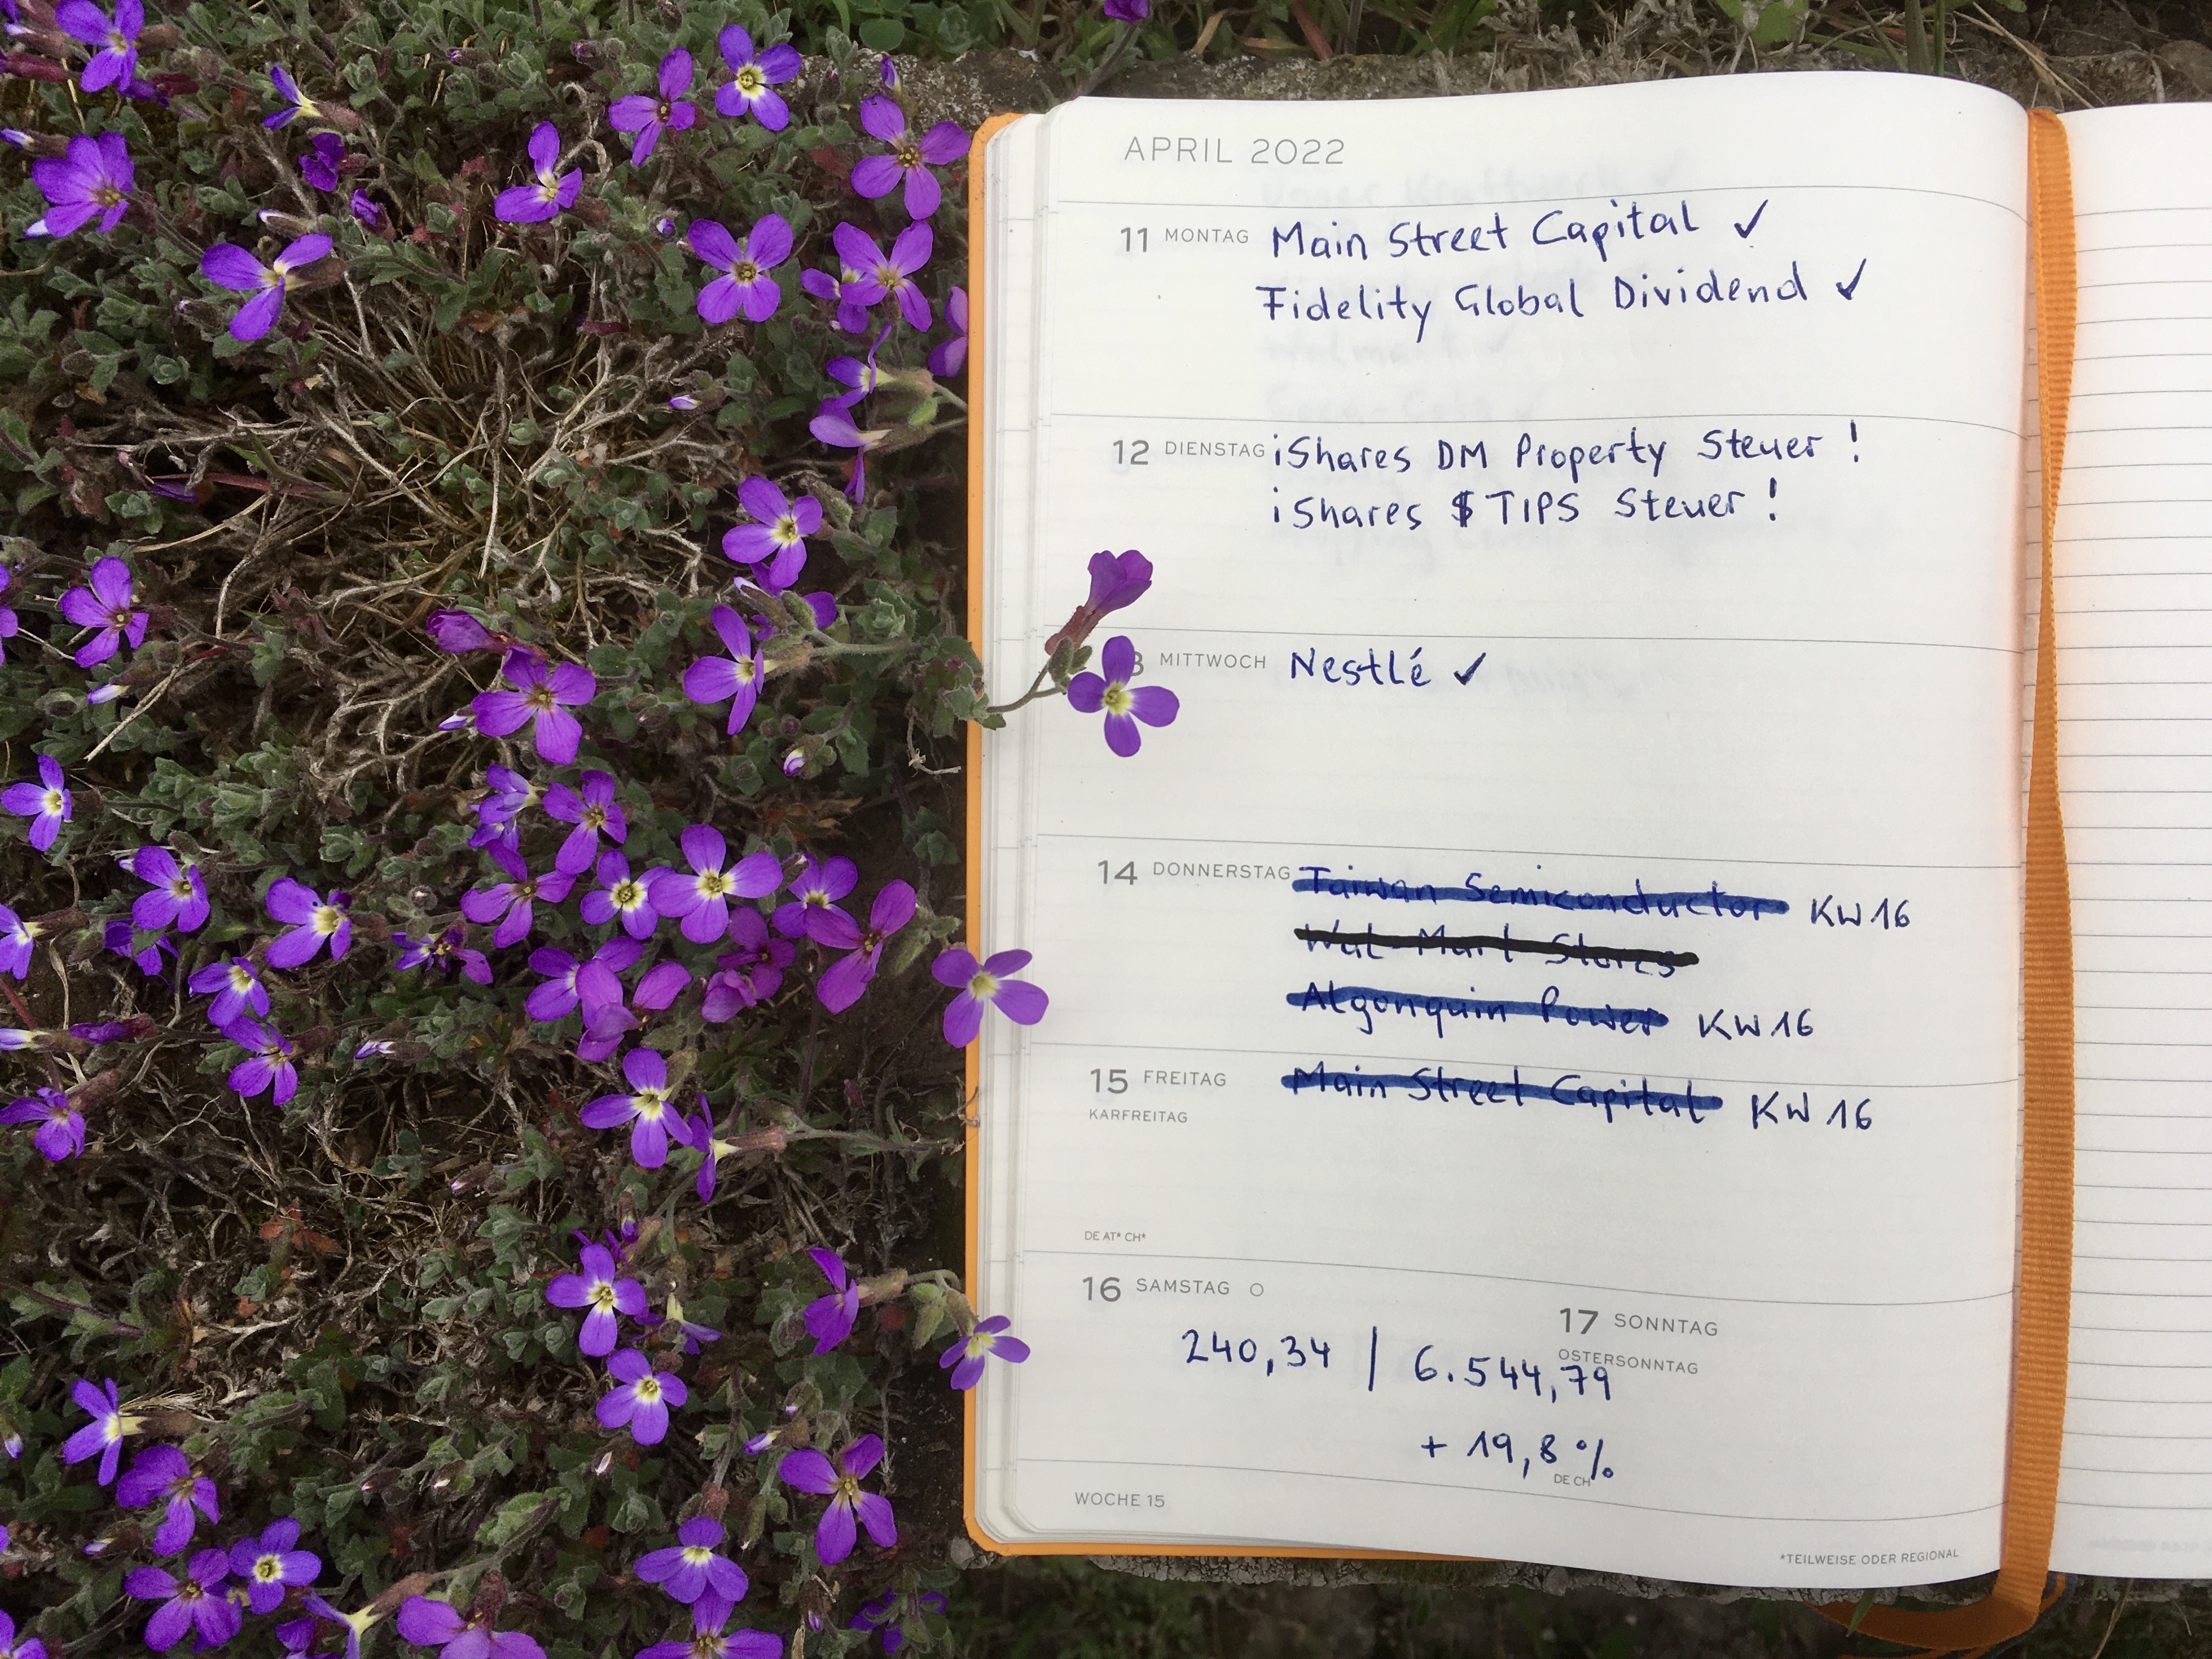 APRIL 2022
11 MONTAG Main Street Capital ✓
Fidelity Global Dividend ✓
12 DIENSTAG iShares DM Property Steuer !
iShares $ TIPS Steuer !
3 MITTWOCH Nestlé ✓
14 DONNERSTAG Taiwan Semiconductor KW 16
Wal-Mart Stores
Algonquin Power KW 16
15 FREITAG Main Street Capital KW 16
KARFREITAG
DE AT* CH*
16 SAMSTAG
17 SONNTAG
OSTERSONNTAG
240,34 | 6.544,79
+ 19,8 %
DE CH
WOCHE 15
*TEILWEISE ODER REGIONAL